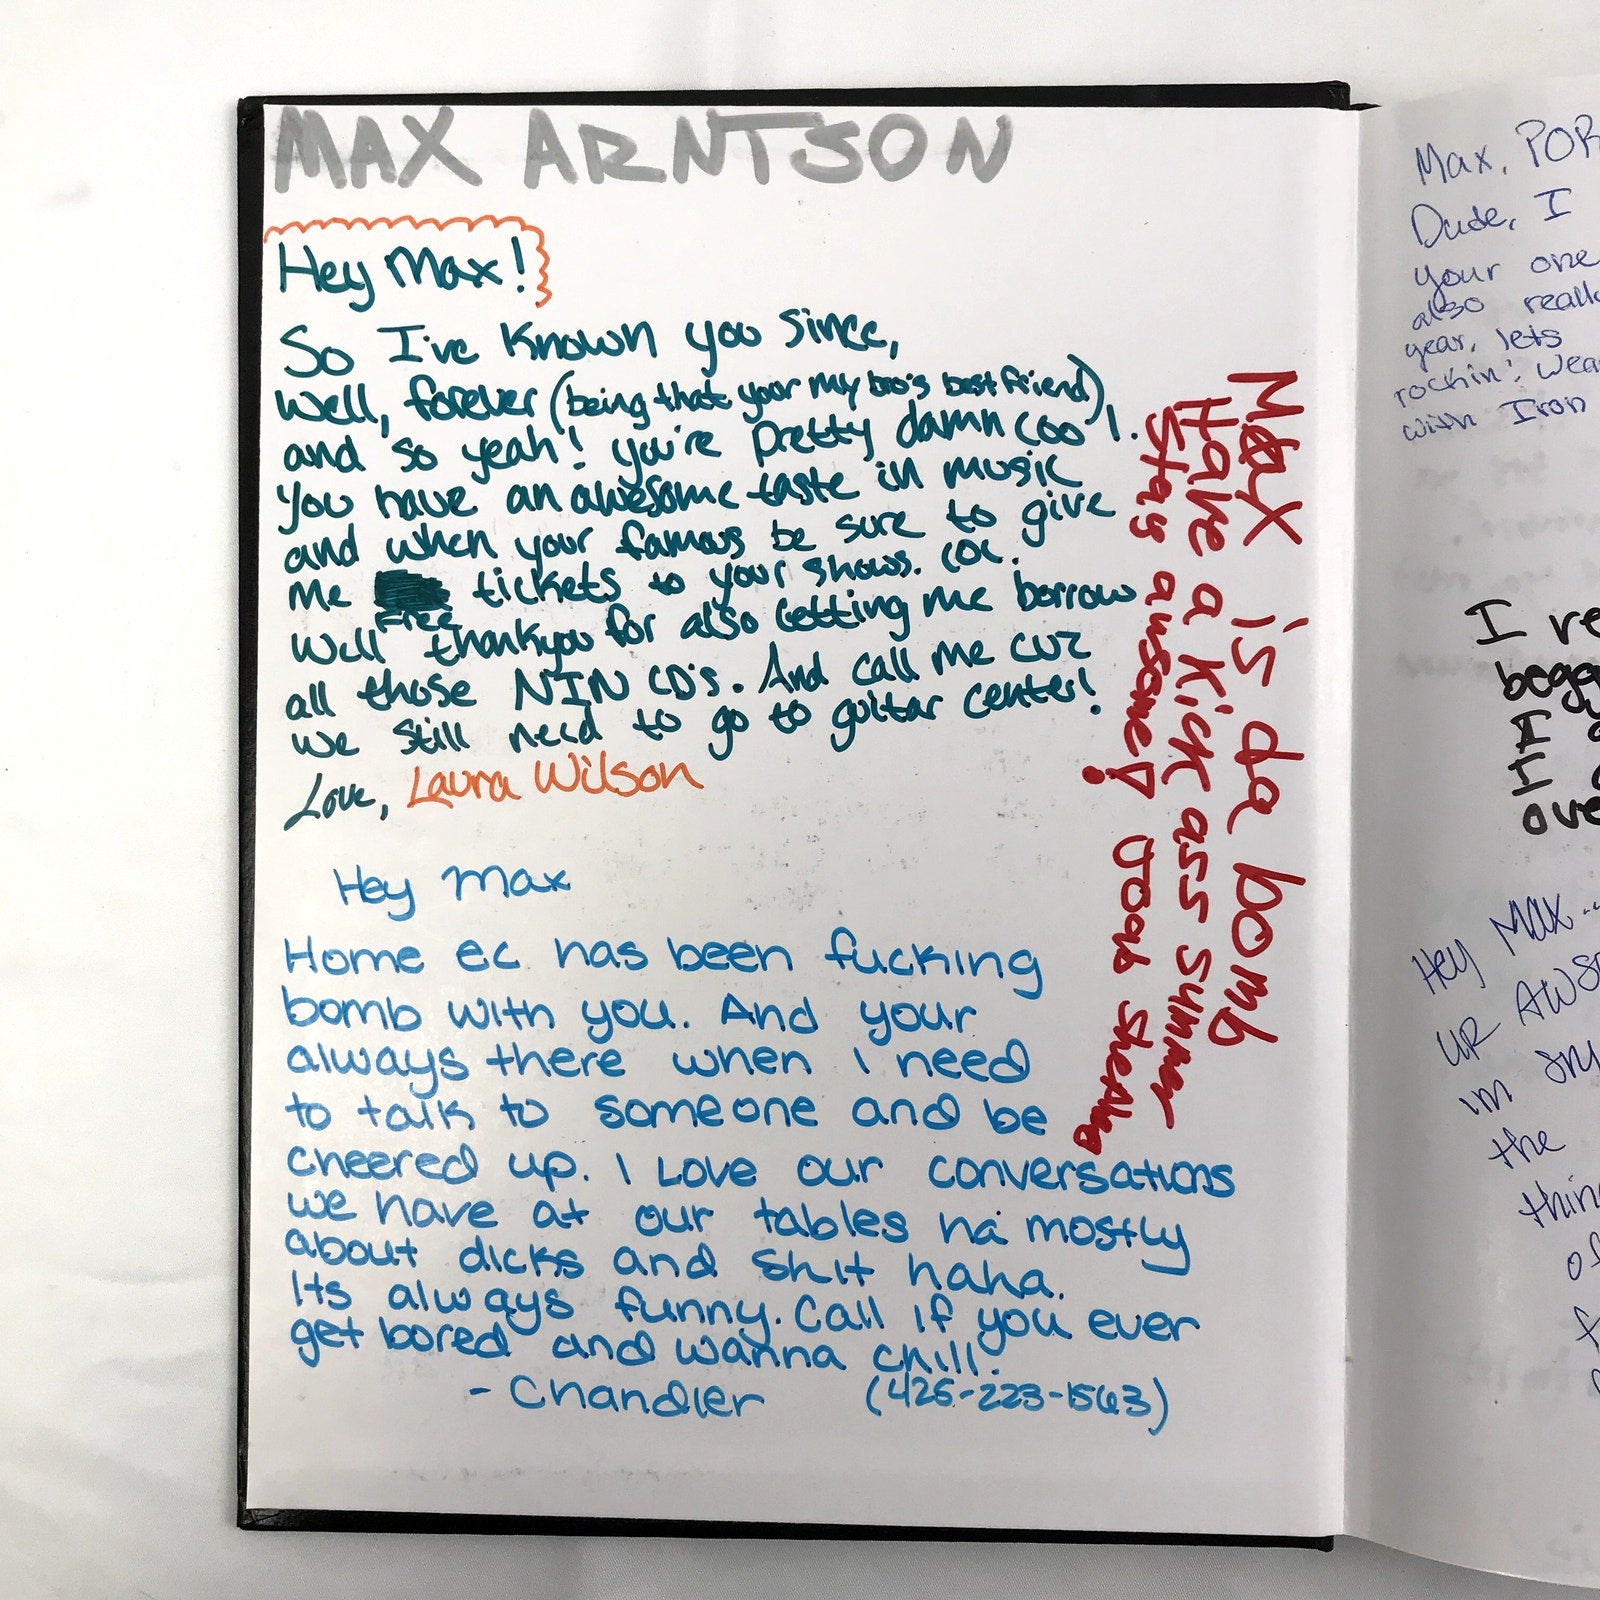 MAX ARNTSON
Hey Max!
So I've known you since,
well, forever (being that your my bro's best friend)
and so yeah! you're pretty damn cool.
You have an awesome taste in music
and when your famous be sure to give
me Free tickets to your shows. LOL.
Well thankyou for also letting me borrow
all those NIN CD's. And call me cuz
we still need to go to guitar center!
Love, Laura Wilson
Max is da bomb
Have a kick ass summer
Stay awsome!
Josh
Hey Max
Home ec has been fucking
bomb with you. And your
always there when I need
to talk to someone and be
cheered up. I Love our conversations
we have at our tables ha mostly
about dicks and shit haha.
Its always funny. Call if you ever
get bored and wanna chill.
- Chandler (425-223-1563)
Max,
Dude, I
your one
also
year, lets
rockin'.
with Iron
I
I
I
Hey Max...
UR
im
the